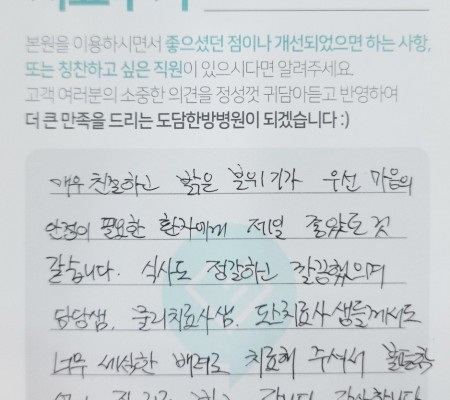 본원을 이용하시면서 좋으셨던 점이나 개선되었으면 하는 사항,
또는 칭찬하고 싶은 직원이 있으시다면 알려주세요.
고객 여러분의 소중한 의견을 정성껏 귀담아듣고 반영하여
더 큰 만족을 드리는 도담한방병원이 되겠습니다 :)
매우 친절하고 밝은 분위기가 우선 마음의
안정이 필요한 환자에게 제일 좋았던 것
같습니다. 식사도 정갈하고 깔끔했으며
담당샘, 물리치료사샘, 도수치료사샘들께서도
너무 세심한 배려로 치료해 주셔서
갑니다 감사합니다